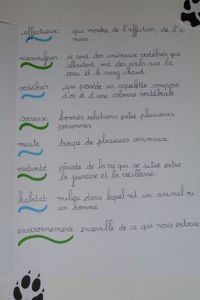 affectueux : qui montre de l'affection, de l'a
mour.
mammifères : ce sont des animaux vertébrés qui
allaitent, ont des poils sur la
peau et le sang chaud.
vertébrés : qui possède un squelette composé
d'os et d'une colonne vertébrale
sociaux : bonnes relations entre plusieurs
personnes
meute : troupe de plusieurs animaux
maturité : période de la vie qui se situe entre
la jeunesse et la vieillesse.
habitat : milieu dans lequel vit un animal ou
un homme
environnement : ensemble de ce qui nous entoure